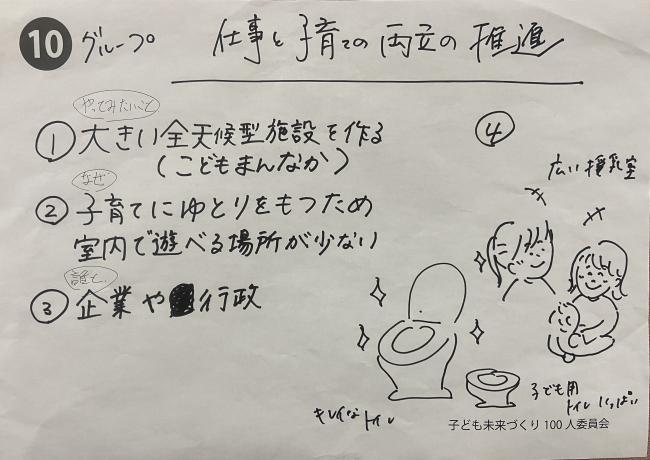 10 グループ 仕事と子育ての両立の推進
やってみたいこと
① 大きい全天候型施設を作る
(こどもまんなか)
なぜ
② 子育てにゆとりをもつため
室内で遊べる場所が少ない
誰と
③ 企業や行政
④
広い授乳室
キレイなトイレ
子ども用
トイレいっぱい
子ども未来づくり100人委員会